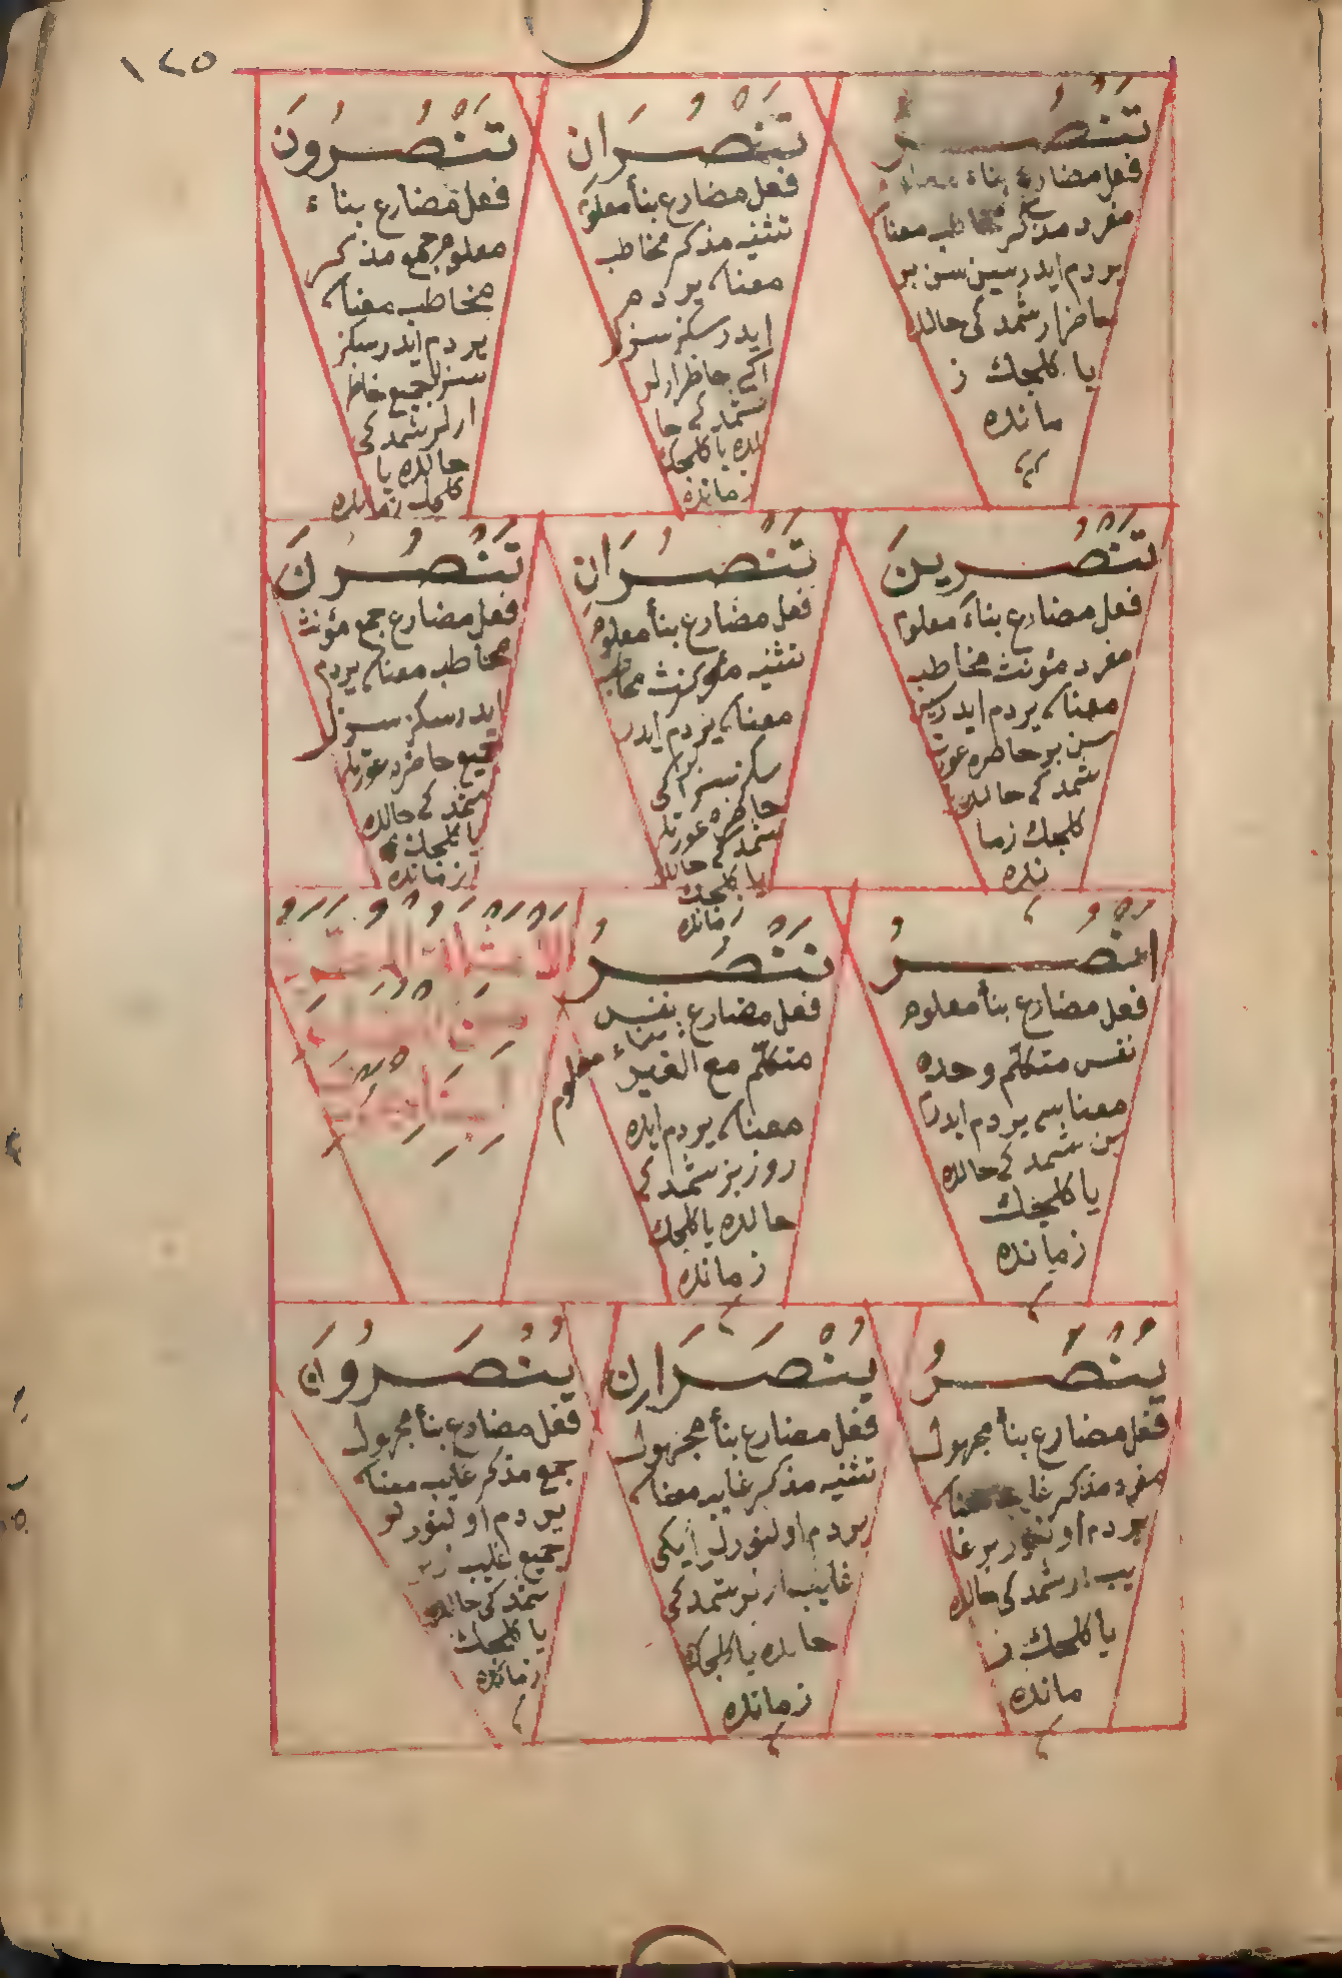 ١٤٥
تَنْصُرُ
فعل مضارع بناء معلوم
مفرد مذكر مخاطب معناه
يردم ايدرسين سن بر
حاضر ار شمدكی حالده
يا كلجك ز
مانده
تَنْصُرَانِ
فعل مضارع بنأ معلوم
تثنيه مذكر مخاطب
معناه يردم
ايدرسكز سز
ايكی حاظر ارلر
شمدكی حا
لده يا كلجك
زمانده
تَنْصُرُونَ
فعل مضارع بناء
معلوم جمع مذكر
مخاطب معناه
يردم ايدرسكز
سزلر جميع حاظر
ارلر شمدكی
حالده يا
كلجك زمانده
تَنْصُرِينَ
فعل مضارع بناء معلوم
مفرد مؤنث مخاطب
معناه يردم ايدرسين
سن بر حاطره عورت
شمدكی حالده
كلجك زما
نده
تَنْصُرَانِ
فعل مضارع بنأ معلوم
تثنيه مؤنث مخاطب
معناه يردم ايدر
سكز سز ايكی
حاظره عورتلر
شمدكی حالده
يا كلجك
زمانده
تَنْصُرْنَ
فعل مضارع جمع مؤنث
مخاطب معناه يردم
ايدرسكز سزلر
جميع حاضره عورتلر
شمدكی حالده
يا كلجك
زمانده
انْصُرُ
فعل مضارع بنأ معلوم
نفس متكلّم وحده
معناسی يردم ايدرم
بن شمدكی حالده
يا كلجك
زمانده
نَنْصُرُ
فعل مضارع بنفس
بناء معلوم
متكلّم مع الغير
معناه يردم ايده
روز بز شمدكی
حالده يا كلجك
زمانده
الامثلة
من
يُنْصَرُ
فعل مضارع بنأ مجهول
مفرد مذكر غايب معناه
يردم اولنور بر غا
يب ار شمدكی حالده
يا كلجك ز
مانده
يُنْصَرَانِ
فعل مضارع بنأ مجهول
تثنيه مذكر غايب معناه
يردم اولنورلر ايكی
غايب ارلر شمدكی
حالده يا كلجك
زمانده
يُنْصَرُونَ
فعل مضارع بنأ مجهول
جمع مذكر غايب معناه
يردم اولنورلر
جميع غايب
شمدكی حالده
يا كلجك
زمانده